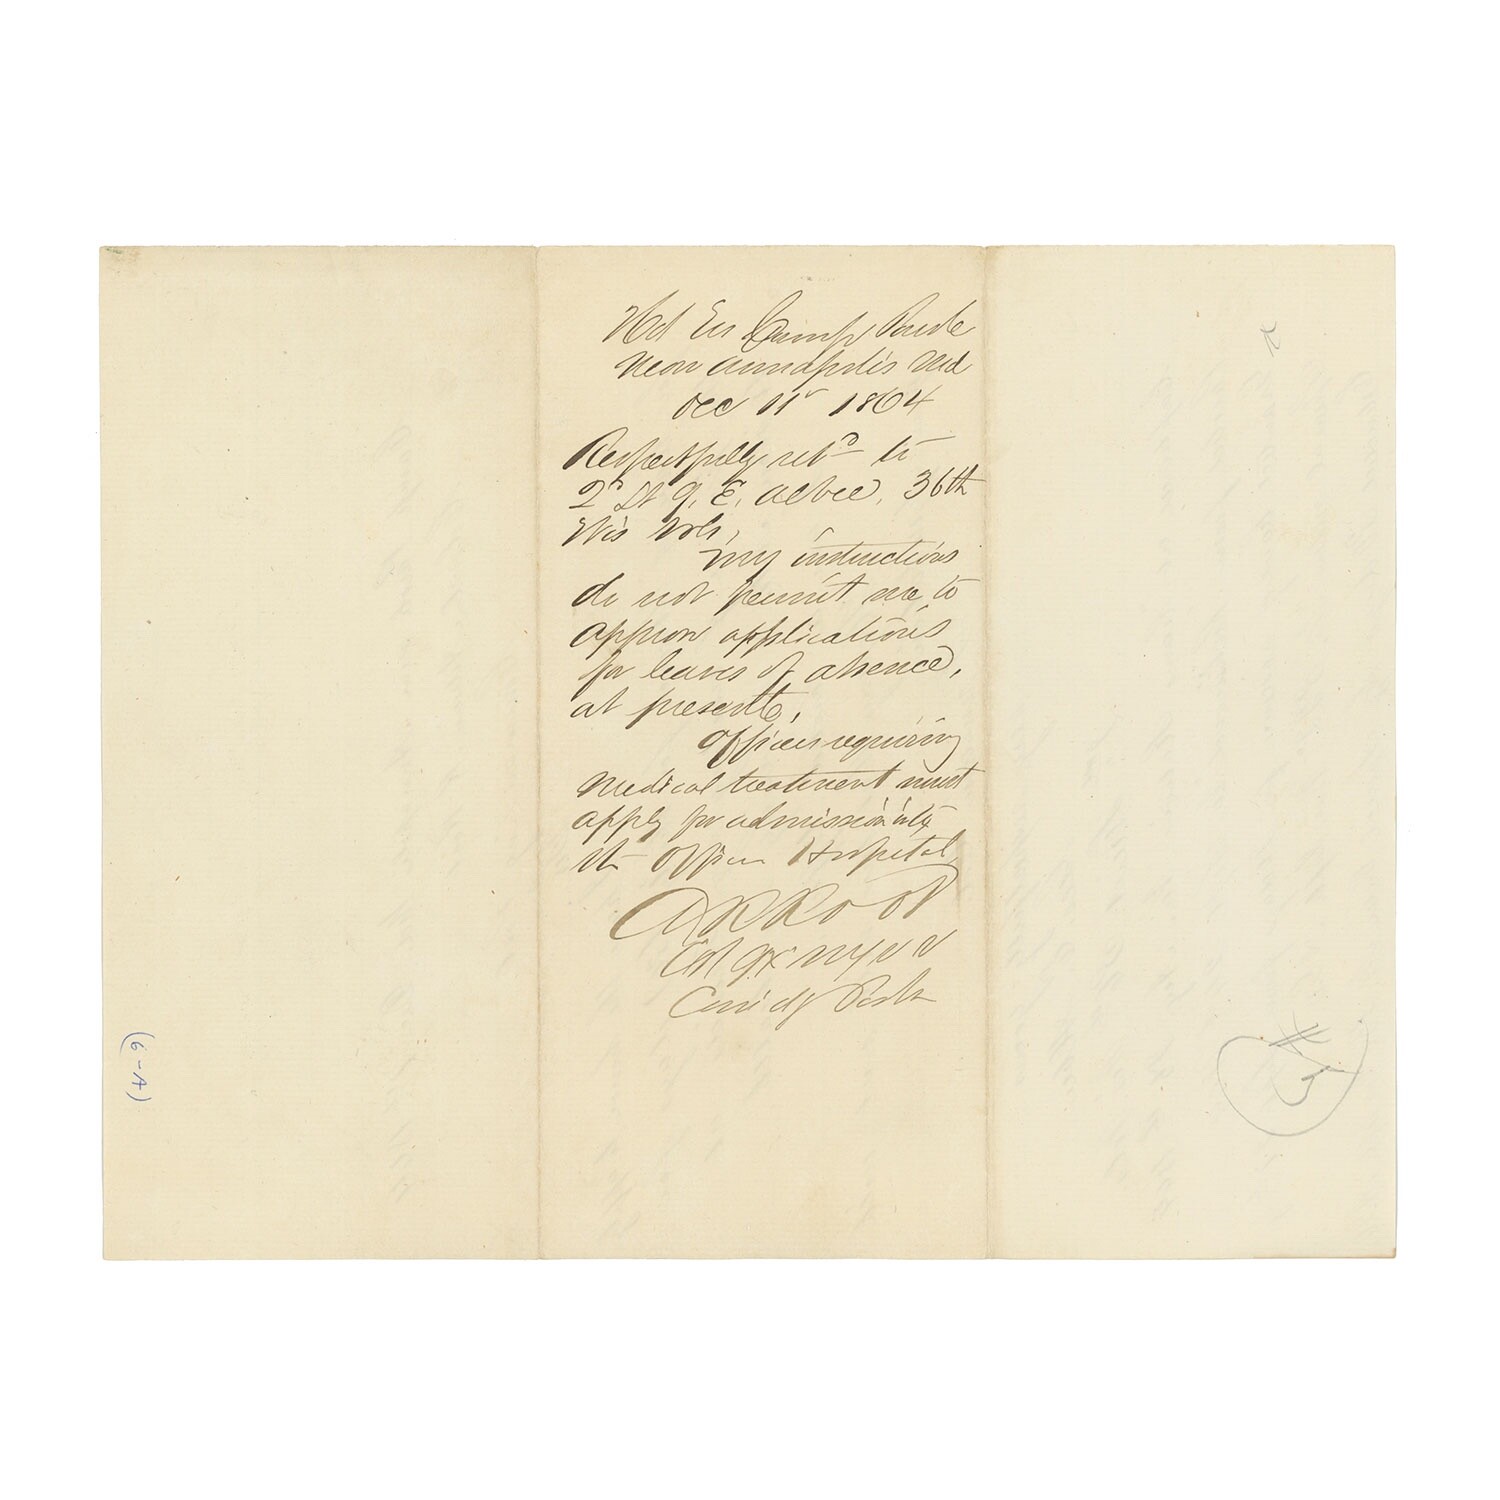 Hd Qrs Camp Parole
Near Annapolis Md
Dec 11th 1864
Respectfully retd to
2d Lt G. E. Albee, 36th
Wis Vols,
My instructions
do not permit me to
approve applications
for leaves of absence,
at present,
Officers requiring
medical treatment must
apply for admission into
the Officers Hospital
A R Root
Col 94 NYVV
Comdg Post
(6-A)
#3
2